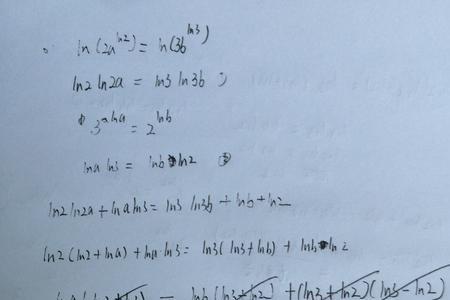 ln(2a^ln2) = ln(3b^ln3)
ln2 ln2a = ln3 ln3b ①
3^lna = 2^lnb
lna ln3 = lnb ln2 ②
ln2 ln2a + lna ln3 = ln3 ln3b + lnb + ln2
ln2 (ln2 + lna) + lna · ln3 = ln3 (ln3 + lnb) + lnb ln2
= lnb (ln3 + ln2) + (ln3 + ln2)(ln3 - ln2)